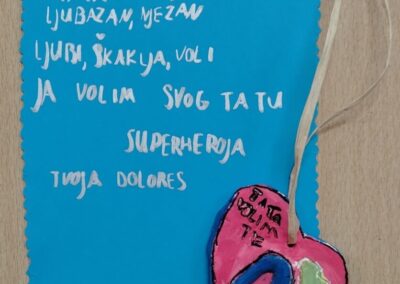 LJUBAZAN, NJEŽAN
LJUBI, ŠKAKLJA, VOLI
JA VOLIM SVOG TATU
SUPERHEROJA
TVOJA DOLORES
TATA
VOLIM
TE